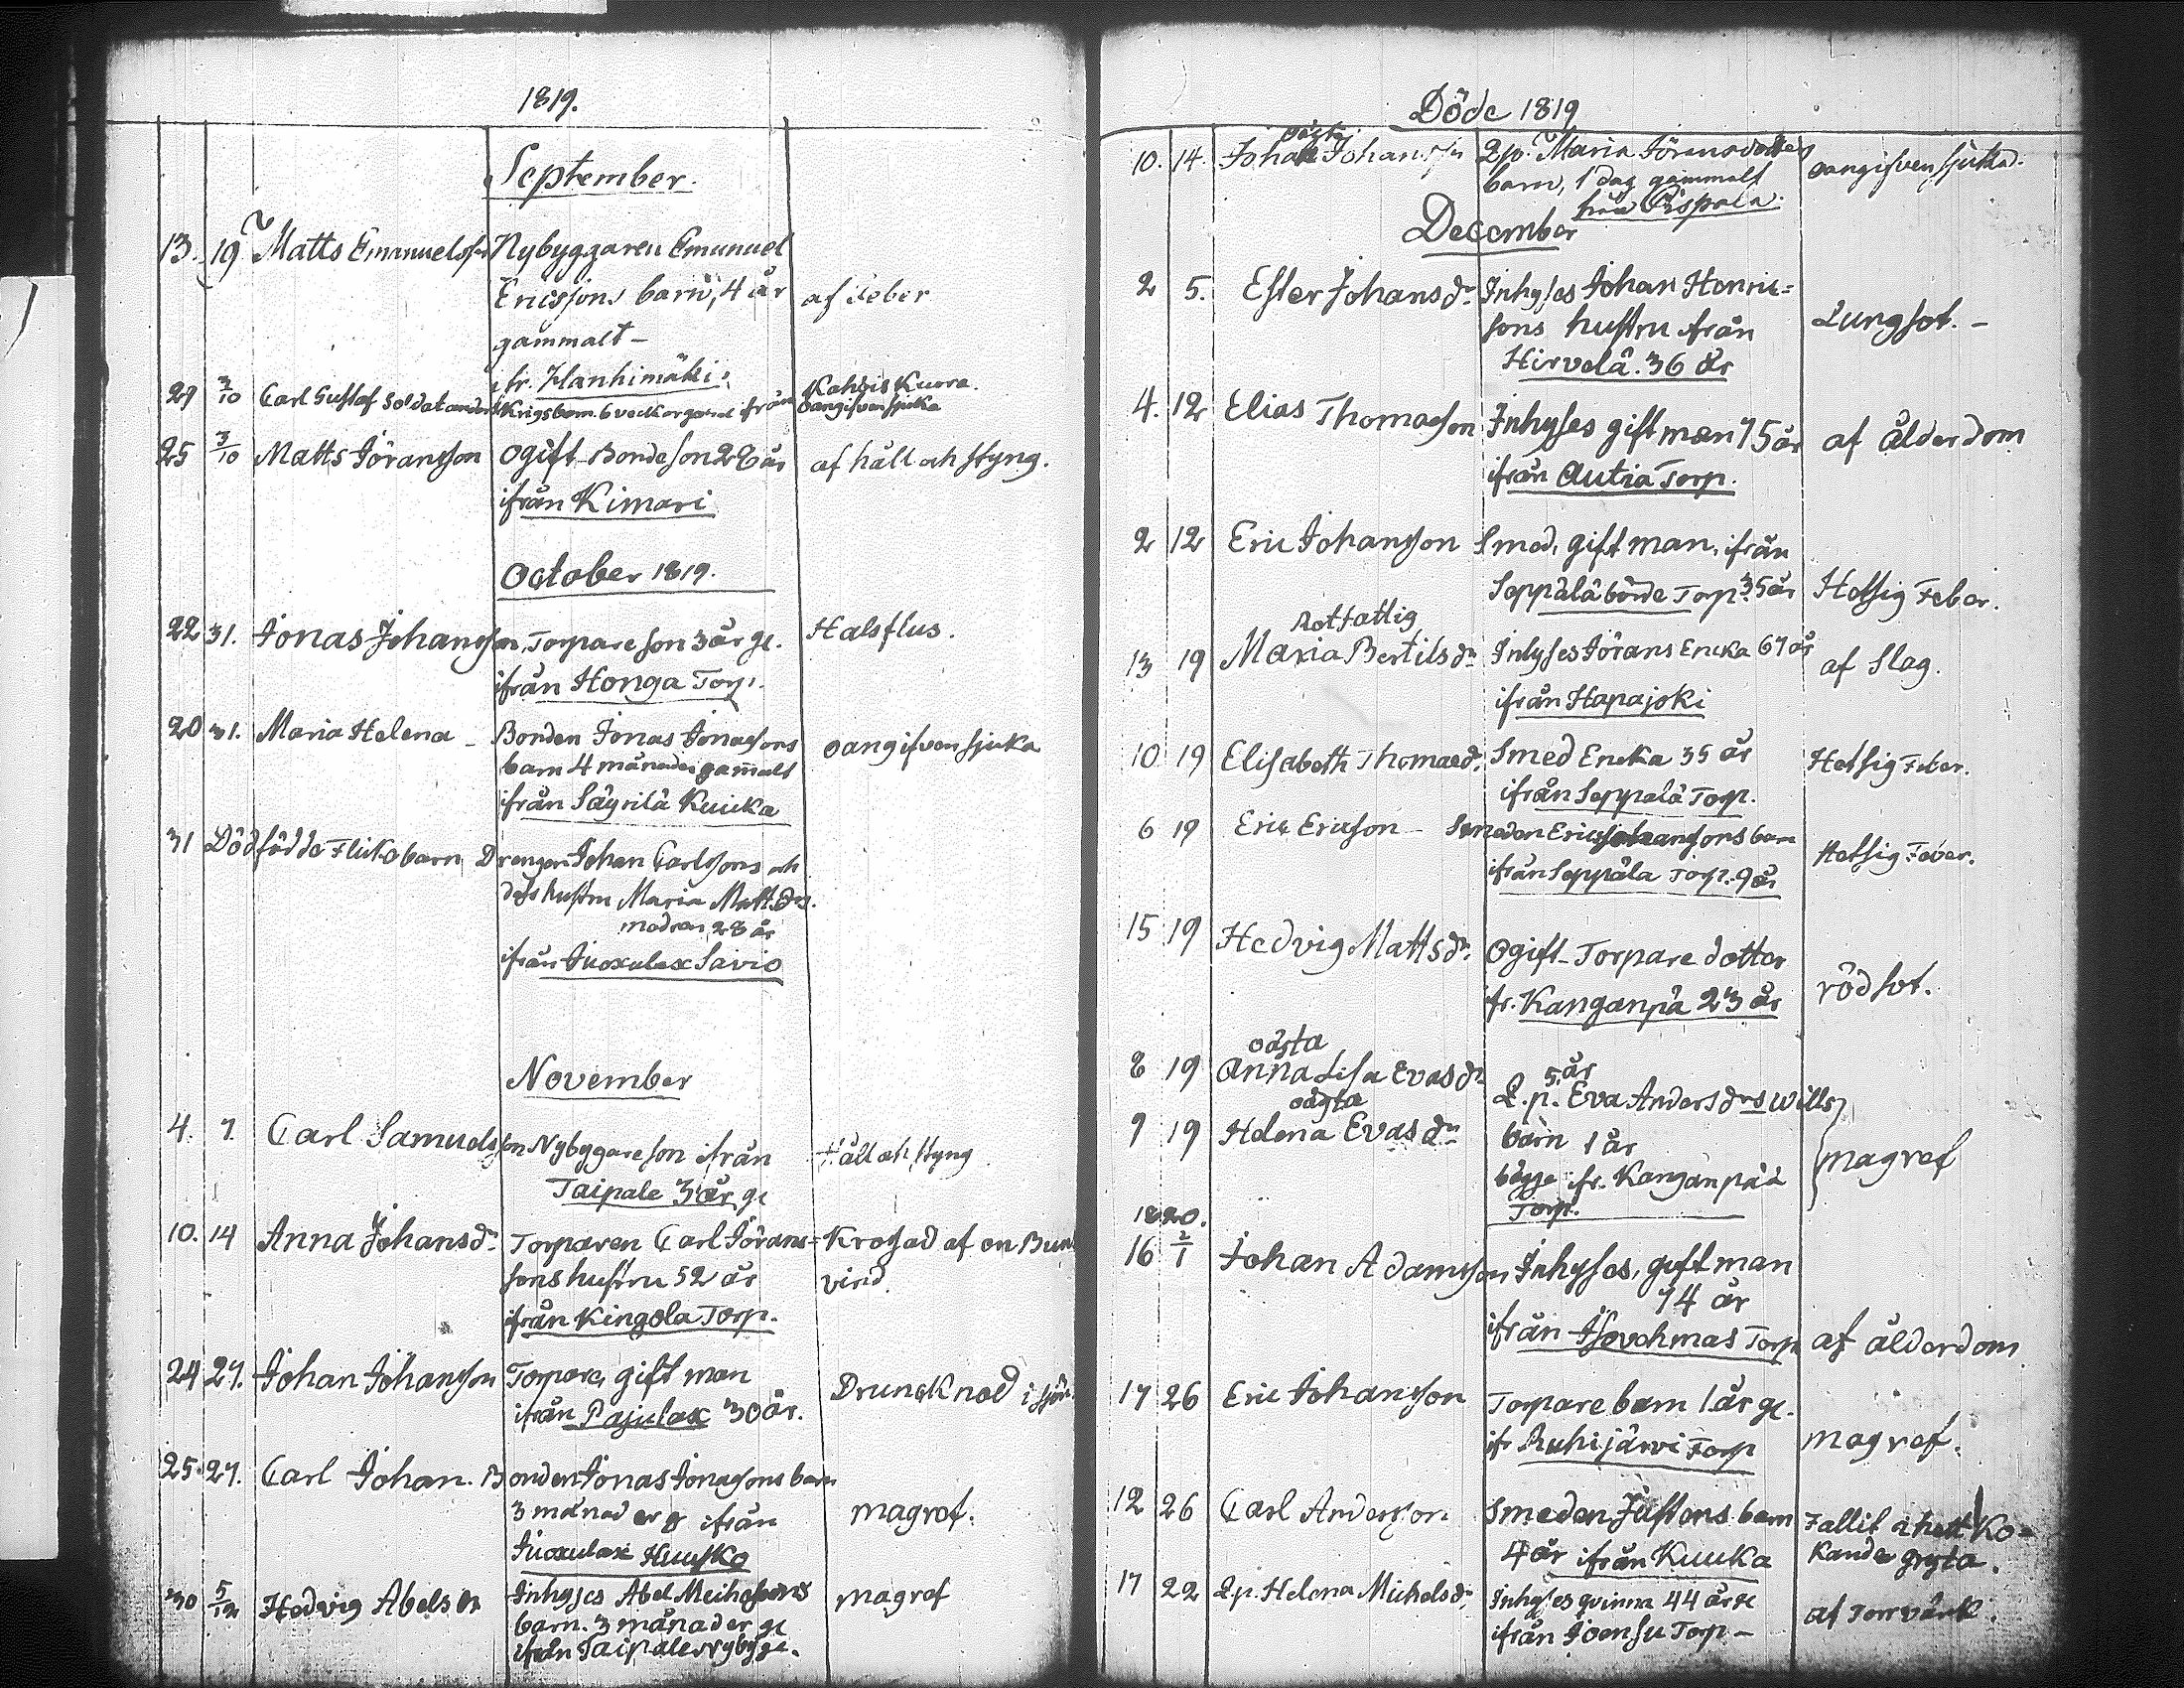 1819.
September.
13. 19 Matts Emanuelsson Nybyggaren Emanuel
Ericssons barn, 4 år af feber
gammalt –
fr. Hanhimäki.
Kahvis Kuora.
29 3/10 Carl Gustaf Soldat Krigsbarn 6 veckor gamal ifrån oangifven sjuka
25 3/10 Matts Jöransson Ogift Bondeson 28 år af håll och styng.
ifrån Kimari
October 1819.
22 31. Jonas Johansson, Torpareson 3 år gl. Halsflus.
ifrån Honga Torp.
20 31. Maria Helena – Bonden Jonas Jonassons oangifven sjuka
barn 4 månader gamalt
ifrån Säyrilä Kuuka
31 Dödfödde Flickobarn Drengen Johan Carlssons och
dess hustru Maria Matts dr.
modren 28 år
ifrån Juoxulax Savio
November
4. 7. Carl Samuelsson Nybyggareson ifrån Håll och styng
Taipale 3 år gl
10. 14 Anna Johans dr. Torparen Carl Jörans= Krossad af en Bund
sons hustru 52 år vind.
ifrån Kingola Torp.
24 27. Johan Johansson Torpare, gift man Drunknad i sjön.
ifrån Pajulax 30 år.
25. 27. Carl Johan. Bonden Jonas Jonassons barn
3 månader g ifrån magref.
Juoxulax Huusko
30 5/12 Hedvig Abels dr Inhyses Abel barn. 3 månader gl magref
ifrån Taipale nybygge.
Döde 1819
oägta
10. 14. Johan Johansson Qp. Maria Jöransdotters oangifven sjukd.
barn, 1 dag gammalt
från Pispala.
December
2 5. Ester Johans dr. Inhyses Johan Henric=
sons hustru ifrån Lungsot. –
Hirvelä. 36 år
4. 12 Elias Thomasson Inhyses gift man 75 år af ålderdom
ifrån Autia Torp.
2 12 Eric Johansson Smed, gift man, ifrån
Seppälä Torp. 35 år Hetsig Feber.
Rotfattig
13 19 Maria Bertils dr Inhyses Jörans Encka 67 år af Slag.
ifrån Hapajoki
10 19 Elisabeth Thomas dr. Smed Encka 35 år Hetsig Feber.
ifrån Seppälä Torp.
6 19 Eric Ericson – Smeden Eric Johanssons barn
ifrån Seppäla Torp. 9 år Hetsig Feber.
15 19 Hedvig Matts dr. Ogift Torpare dotter
fr. Kanganpä 23 år rödsot.
oägta
8 19 Anna Lisa Evas dr 5 år
Q.p. Eva Anders drs Wills
oägta
9 19 Helena Evas dr barn 1 år
bägge fr. Kanganpää magref
Torp.
1820.
16 2/1 Johan Adamsson Inhyses, gift man
74 år
ifrån Isovehmas Torp af ålderdom
17 26 Eric Johansson Torpare barn 1 år gl.
ifr Ruhijärvi Torp magref.
12 26 Carl Andersson Smeden barn Fallit i hett Ko=
4 år ifrån Kuuka kande gryta.
17 22 Qp. Helena Michels dr Inhyses qvinna 44 år gl
ifrån Joensu Torp – af Torrvärk.